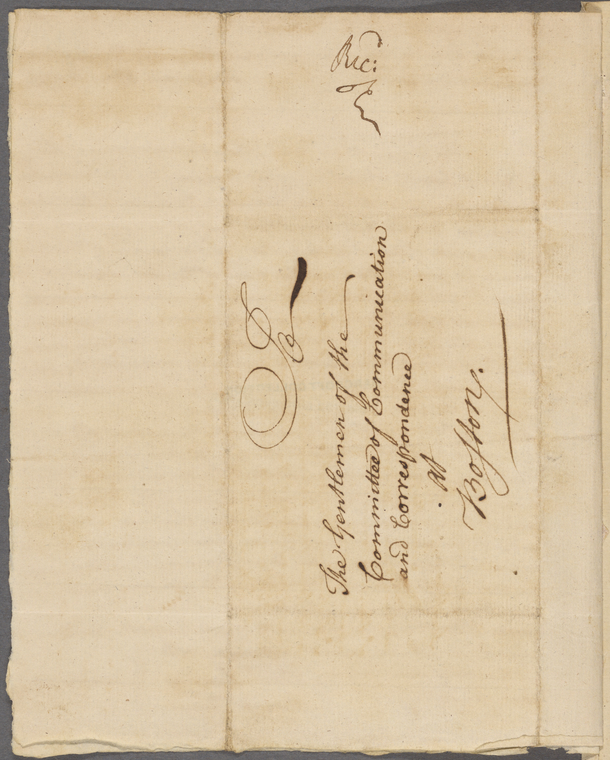 To
The Gentlemen of the
Committee of Communication
and Correspondence
At
Boston.